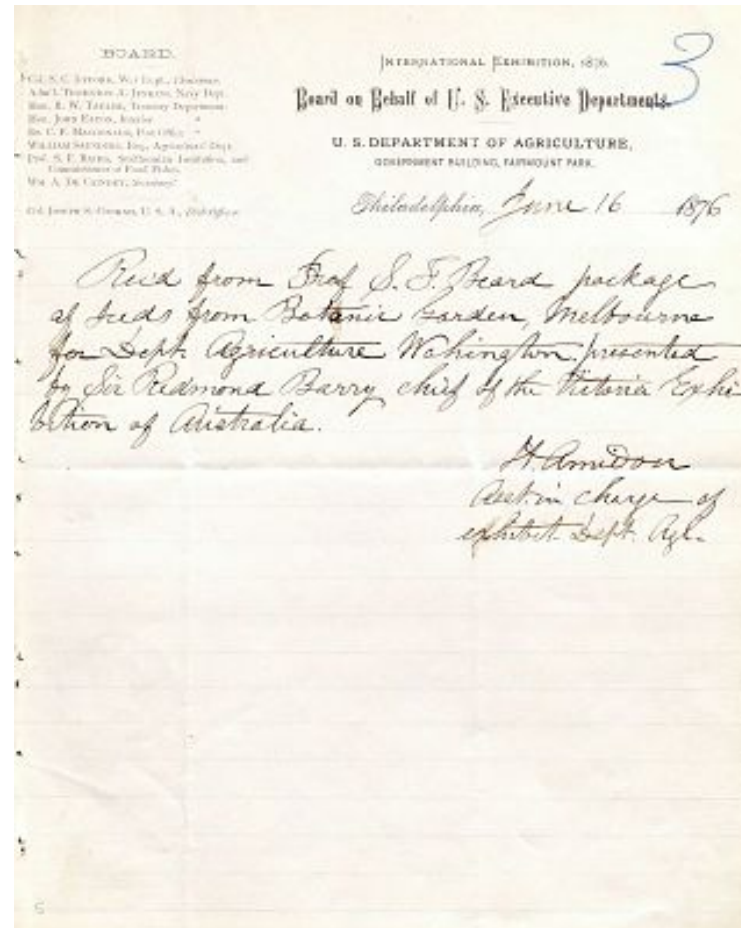 3
BOARD.
Col. S. C. Lyford, War Dept., Chairman.
Adm'l Thornton A. Jenkins, Navy Dept.
Hon. R. W. Tayler, Treasury Department.
Hon. John Eaton, Interior "
Dr. C. F. Macdonald, Post Office "
William Saunders, Esq., Agricultural Dept.
Prof. S. F. Baird, Smithsonian Institution, and
Commissioner of Food Fishes.
Wm. A. De Caindry, Secretary.
U. S. A.,
International Exhibition, 1876.
Board on Behalf of U. S. Executive Departments.
U. S. DEPARTMENT OF AGRICULTURE,
GOVERNMENT BUILDING, FAIRMOUNT PARK.
Philadelphia, June 16 1876
Recd from Prof S. F. Beard package
of seeds from Botanic Garden, Melbourne
for Dept. Agriculture Wahington, presented
by Sir Redmond Barry chief of the Victoria Exhi
bition of Australia.
H. Amidon
Asst. in charge of
exhibit. Dept. Agl.
5